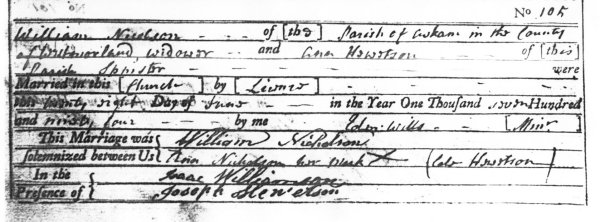 No 105
William Nicolson — of [the] Parish of Askam in the County
of Westmorland widower — and Ann Hewetson of [this]
Parish Spinster were
Married in this [Church] by [Licence]
this twenty eight Day of June in the Year One Thousand seven Hundred
and ninety four by me Edw. Wills [Minr.]
This Marriage was { William Nicholson
solemnized between Us { Ann Nicholson her Mark X (late Hewetson)
In the { Isaac Williamson
Presence of { Joseph Hewetson